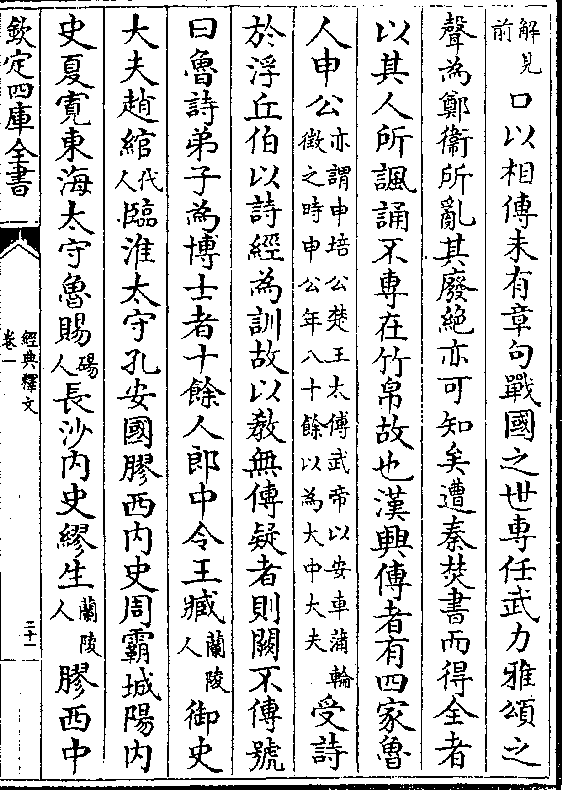 解見前口以相傳未有章句戰國之世專任武力雅頌之
聲為鄭衛所亂其廢絕亦可知矣遭秦焚書而得全者
以其人所諷誦不專在竹帛故也漢興傳者有四家魯
人申公亦謂申培公楚王太傅武帝以安車蒲輪徵之時申公年八十餘以為大中大夫受詩
於浮丘伯以詩經為訓故以教無傳疑者則闕不傳號
曰魯詩弟子為博士者十餘人郎中令王臧蘭陵人御史
大夫趙綰代人臨淮太守孔安國膠西内史周霸城陽内
史夏寛東海太守魯賜碭人長沙内史繆生蘭陵人膠西中
欽定四庫全書
經典釋文
卷一